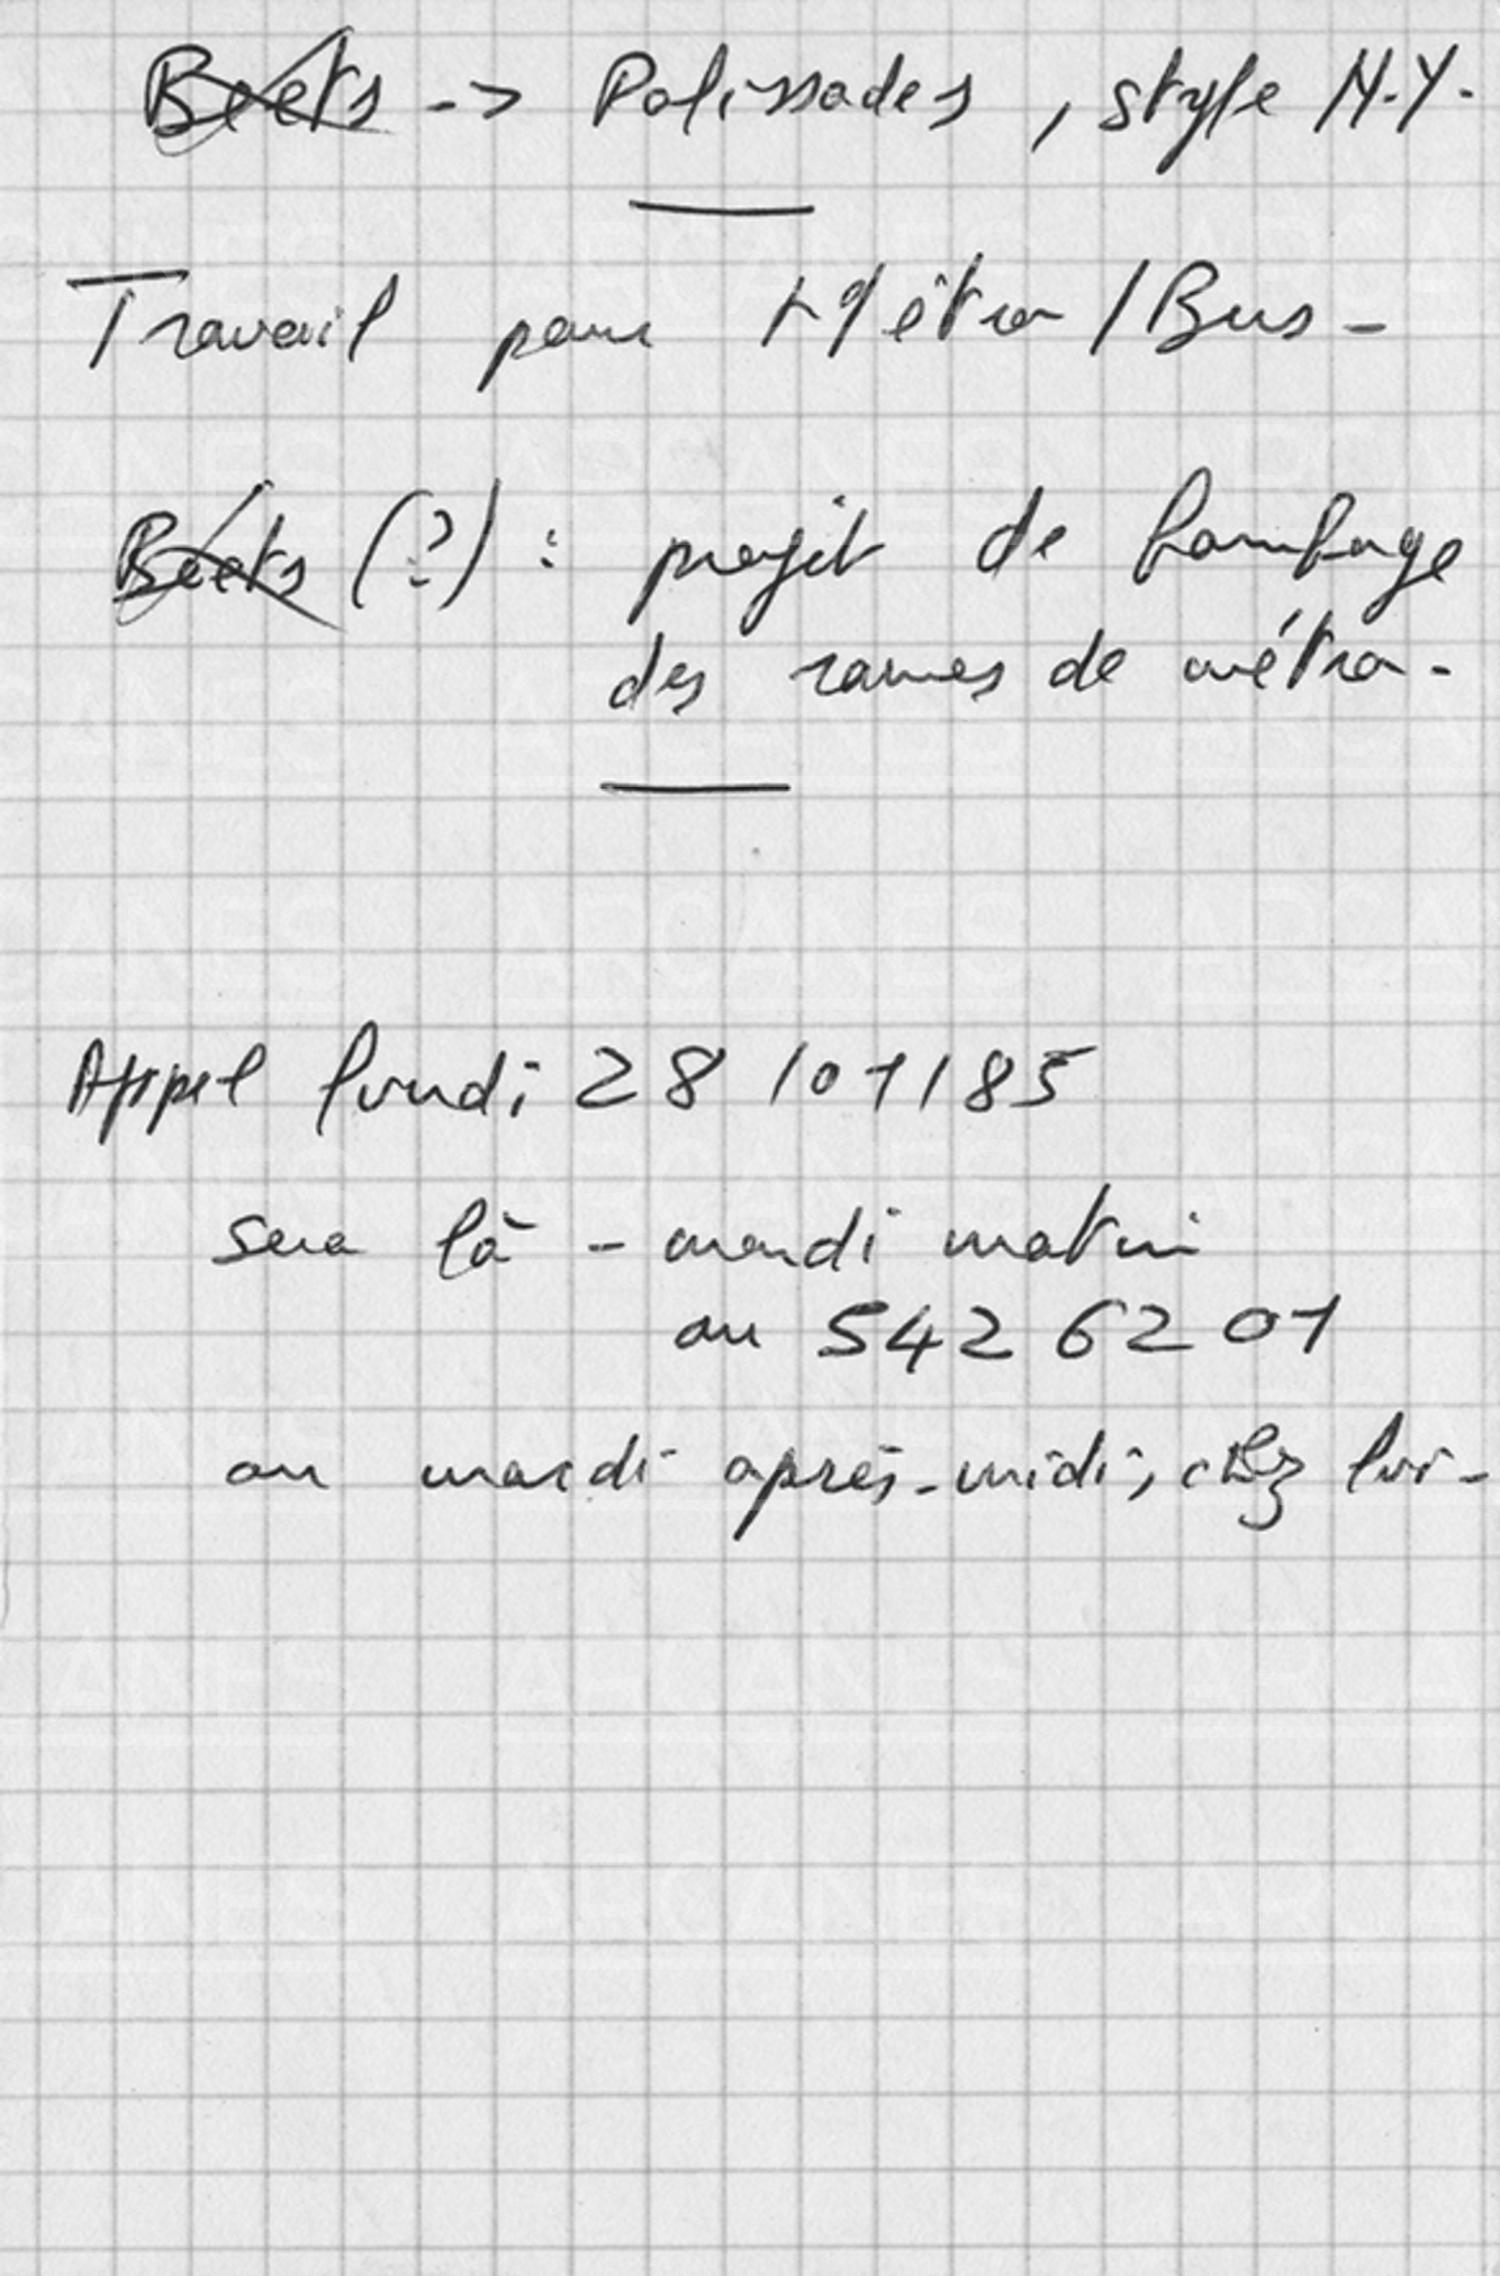 Beets -> Palissades, style N.Y.
Travail pour Métro/Bus -
Beets (?) : projet de bombage
des rames de métro -
Appel lundi 28/01/85
sera là - mardi matin
au 542 62 01
ou mardi après-midi, chez lui -